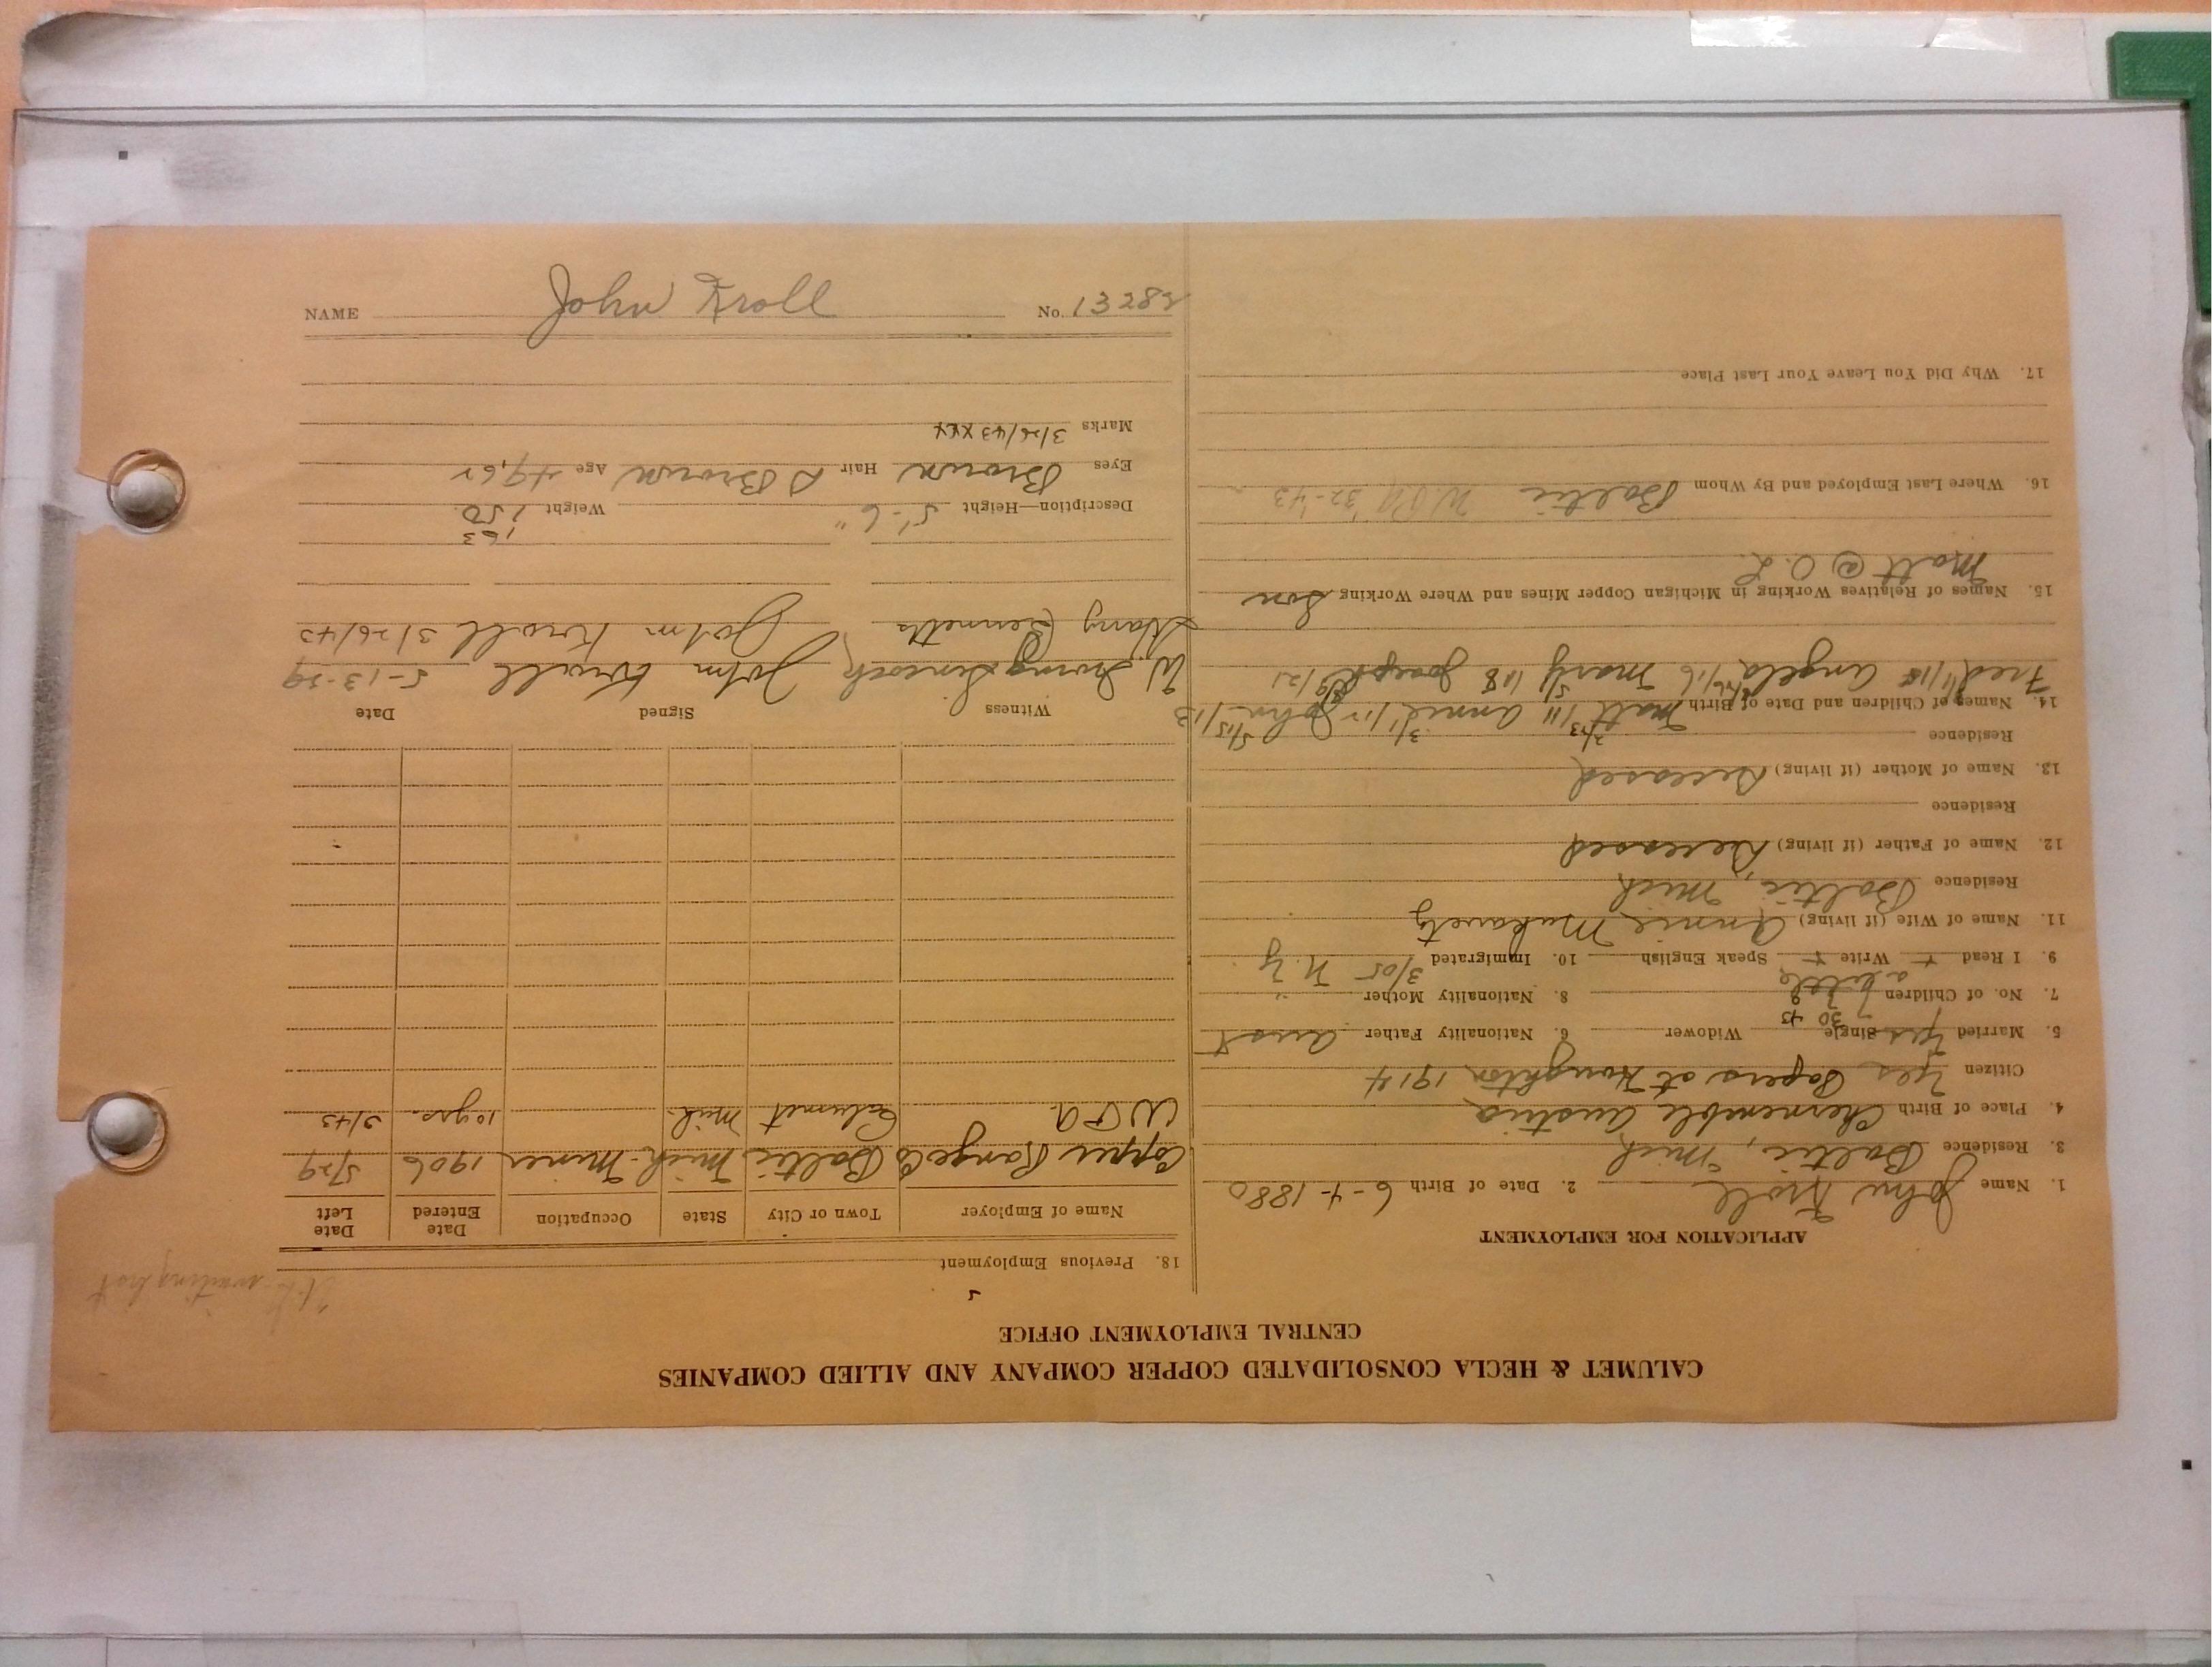 CALUMET & HECLA CONSOLIDATED COPPER COMPANY AND ALLIED COMPANIES
CENTRAL EMPLOYMENT OFFICE
APPLICATION FOR EMPLOYMENT
1. Name John Kroll 2. Date of Birth 6-4-1880
3. Residence Baltic, Mich
4. Place of Birth Chernemble Austria
Citizen Yes Papers at Houghton 1914
5. Married Yes Single Widower 6. Nationality Father Aust
30 43
7. No. of Children 7 9 8. Nationality Mother "
a little
9. I Read x Write x Speak English 10. Immigrated 3/05 N.Y
11. Name of Wife (if living) Annie
Residence Baltic, Mich
12. Name of Father (if living) Deceased
Residence
13. Name of Mother (if living) Deceased
Residence
14. Names of Children and Date of Birth Matt 3/11 Anna 3/1/12 John 5/15/13
Fred 1/15 Angela /16 Mary 5/1/18 Joseph 9/21
15. Names of Relatives Working in Michigan Copper Mines and Where Working Son
Matt @ O.L.
16. Where Last Employed and By Whom Baltic W.P.A '32-'43
17. Why Did You Leave Your Last Place
waiting list
18. Previous Employment
Name of Employer Town or City State Occupation Date Entered Date Left
Copper Range Co Baltic Mich. Miner 1906 5/29
W.P.A. Calumet Mich. 10 yrs. 3/43
Witness Signed Date
W. Irving John Kroll 5-13-29
Harry Bennetts John Kroll 3/26/43
163
Description—Height 5'-6" Weight 150
Eyes Brown Hair D Brown Age 49, 62
Marks 3/26/43 xxx
NAME John Kroll No. 13282